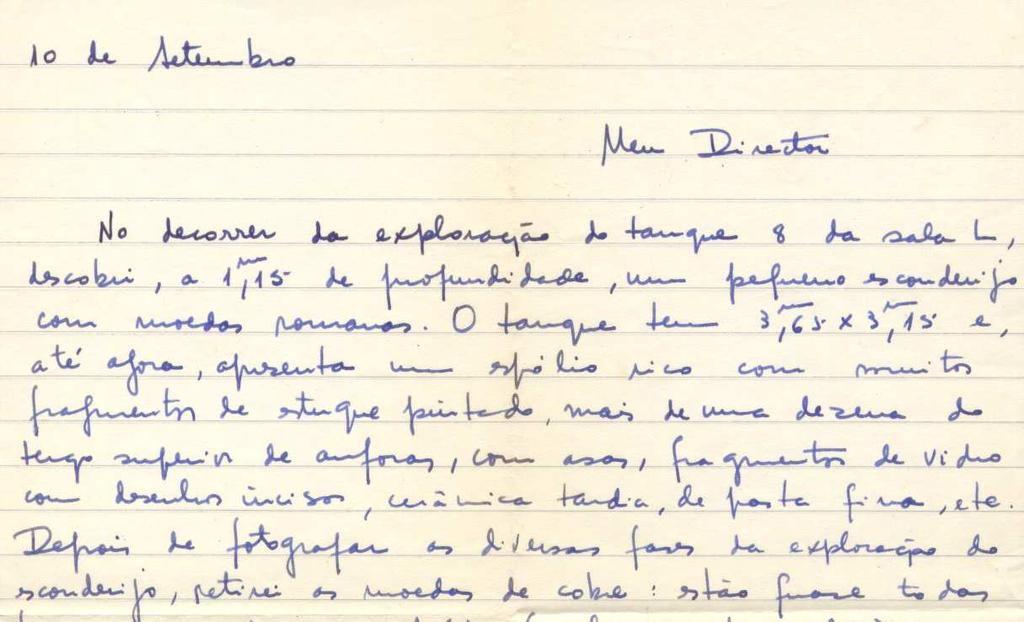 10 de Setembro
Meu Director
No decorrer da exploração do tanque 8 da sala L,
descobri, a 1,ᵐ15 de profundidade, um pequeno esconderijo
com moedas romanas. O tanque tem 3,ᵐ65 x 3,ᵐ15 e,
até agora, apresenta um espólio rico com muitos
fragmentos de estuque pintado, mais de uma dezena do
terço superior de anforas, com asas, fragmentos de vidro
com desenhos incisos, cerâmica tardia, de pasta fina, etc.
Depois de fotografar as diversas fases da exploração do
esconderijo, retirei as moedas de cobre: estão quase todas